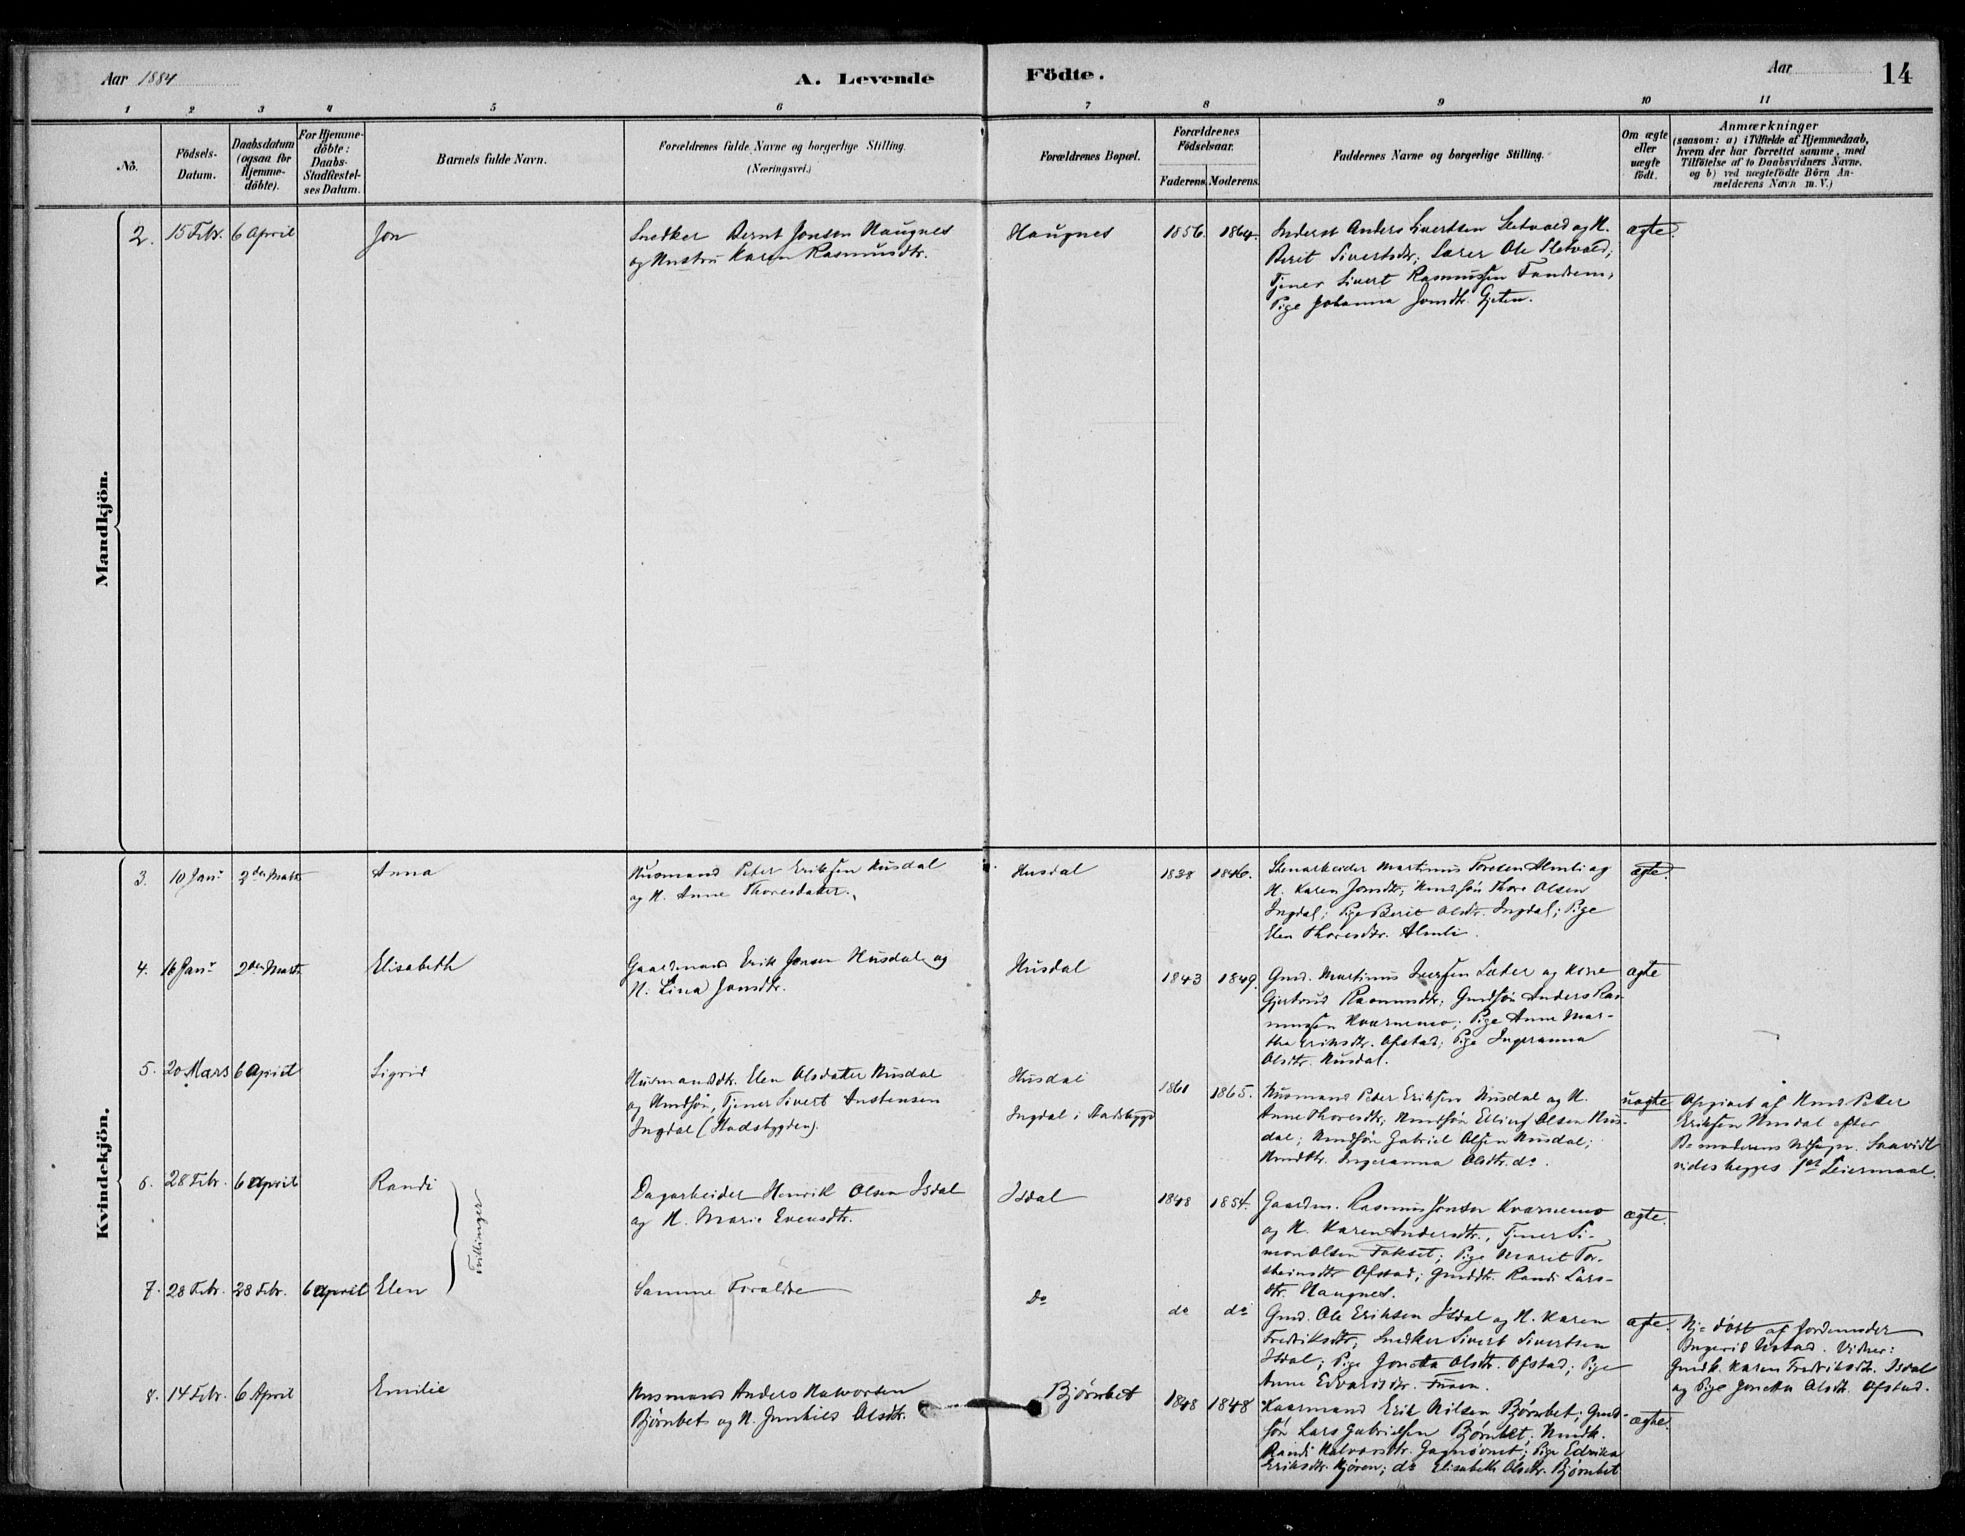 Aar 1884
A. Levende Födte.
Aar
14
1 2 3 4 5 6 7 8 9 10 11
No.
Födsels-Datum.
Daabsdatum (ogsaa for Hjemme-döbte).
For Hjemme-döbte: Daabs-Stadfæstel-ses Datum.
Barnets fulde Navn.
Forældrenes fulde Navne og borgerlige Stilling. (Næringsvei.)
Forældrenes Bopæl.
Forældrenes Födselsaar.
Faderens. Moderens.
Faddernes Navne og borgerlige Stilling.
Om ægte eller uægte födt.
Anmærkninger
(saasom: a) i Tilfælde af Hjemmedaab,
hvem der har forrettet samme, med
Tilföielse af to Daabsvidners Navne.
og b) ved uægtefödte Börn An-
melderens Navn m. V.)
Mandkjön.
2. 15 Febr. 6 April Jon
Snedker Bernt Jonsen Haugnes
og Hustru Karen Rasmusdtr.
Haugnes 1856. 1864.
Inderst Anders Sivertsen Sletvold og H.
Berit Sivertsdtr; Lærer Ole Sletvold;
Tjener Sivert Rasmussen Tandrem;
Pige Johanna Jonsdtr. Gjeten.
ægte.
Kvindekjön.
3. 10 Janr 2den Marts Anna
Husmand Peter Eriksen Husdal
og H. Anne Thoresdatter.
Husdal 1828 1846.
Stenarbeider Martinus Toresen Almli og
H. Karen Jonsdtr; Husm.søn Thore Olsen
Ingdal; Pige Berit Olsdtr. Ingdal; Pige
Elen Thoresdtr. Almli.
ægte.
4. 16 Janr 2den Marts Elisabeth
Gaardmand Erik Jonsen Husdal og
H. Lina Jonsdtr.
Husdal 1843 1849.
Gmd. Martinus Iversen Sæter og Kone
Gjertrud Rasmusdtr; Gmdsøn Anders Ras-
mussen Kværnemo; Pige Anne Mar-
tha Eriksdtr. Ofstad; Pige Ingeranna
Olsdtr. Husdal.
ægte
5. 20 Mars 6 April Sigrid
Husmandsdtr. Elen Olsdatter Husdal
og Hmdsøn, Tjener Sivert Anstensen
Ingdal (Stadsbygden).
Husdal
Ingdal i Stadsbygd
1861 1865.
Husmand Peder Eriksen Husdal og H.
Anne Thoresdtr; Hmdsøn Elling Olsen Hus-
dal; Hmdsøn Gabriel Olsen Husdal;
Hmdtr. Ingeranna Olsdtr. do.
uægte
Opgivet af Hmd Peter
Eriksen Husdal efter
Barnemoderens Udsagn. Saavidt
vides begges 1ste Leiermaal.
6. 28 Febr. 6 April Randi
Tvillinger
Dagarbeider Henrik Olsen Isdal
og H. Marie Evensdtr.
Isdal 1848 1854.
Gaardm. Rasmus Jonsen Kværnemo
og H. Karen Andersdtr., Tjener Si-
mon Olsen Fokset; Pige Marit Tor-
steinsdtr Ofstad; Gmddtr. Randi Lars-
dtr. Haugnes.
ægte.
7. 28 Febr. 28 Febr. 6 April Elen
Samme Forældre
Do do do
Gmd. Ole Eriksen Isdal og H. Karen
Fredriksdtr; Snedker Sivert Sivertsen
Isdal; Pige Jonetta Olsdtr. Ofstad; Pige
Anne Edvardsdtr.
ægte.
Hj. døbt af Jordemoder
Ingerid Ustad. Vidner:
Gmdk. Karen Fredriksdtr. Isdal
og Pige Jonetta Olsdtr. Ofstad.
8. 14 Febr. 6 April Emilie
Husmand Anders Halvorsen
Bjørnbet og H. Gunhild Olsdtr.
Bjørnbet 1848 1848
Kaarmand Erik Nilsen Bjørnbet; Gmd-
søn Lars Gabrielsen Bjørnbet; Hmdk.
Randi Halvorsdtr. Pige Edvika
Eriksdtr. Kjøren; do Elisabeth Olsdtr. Bjørnbet
ægte.